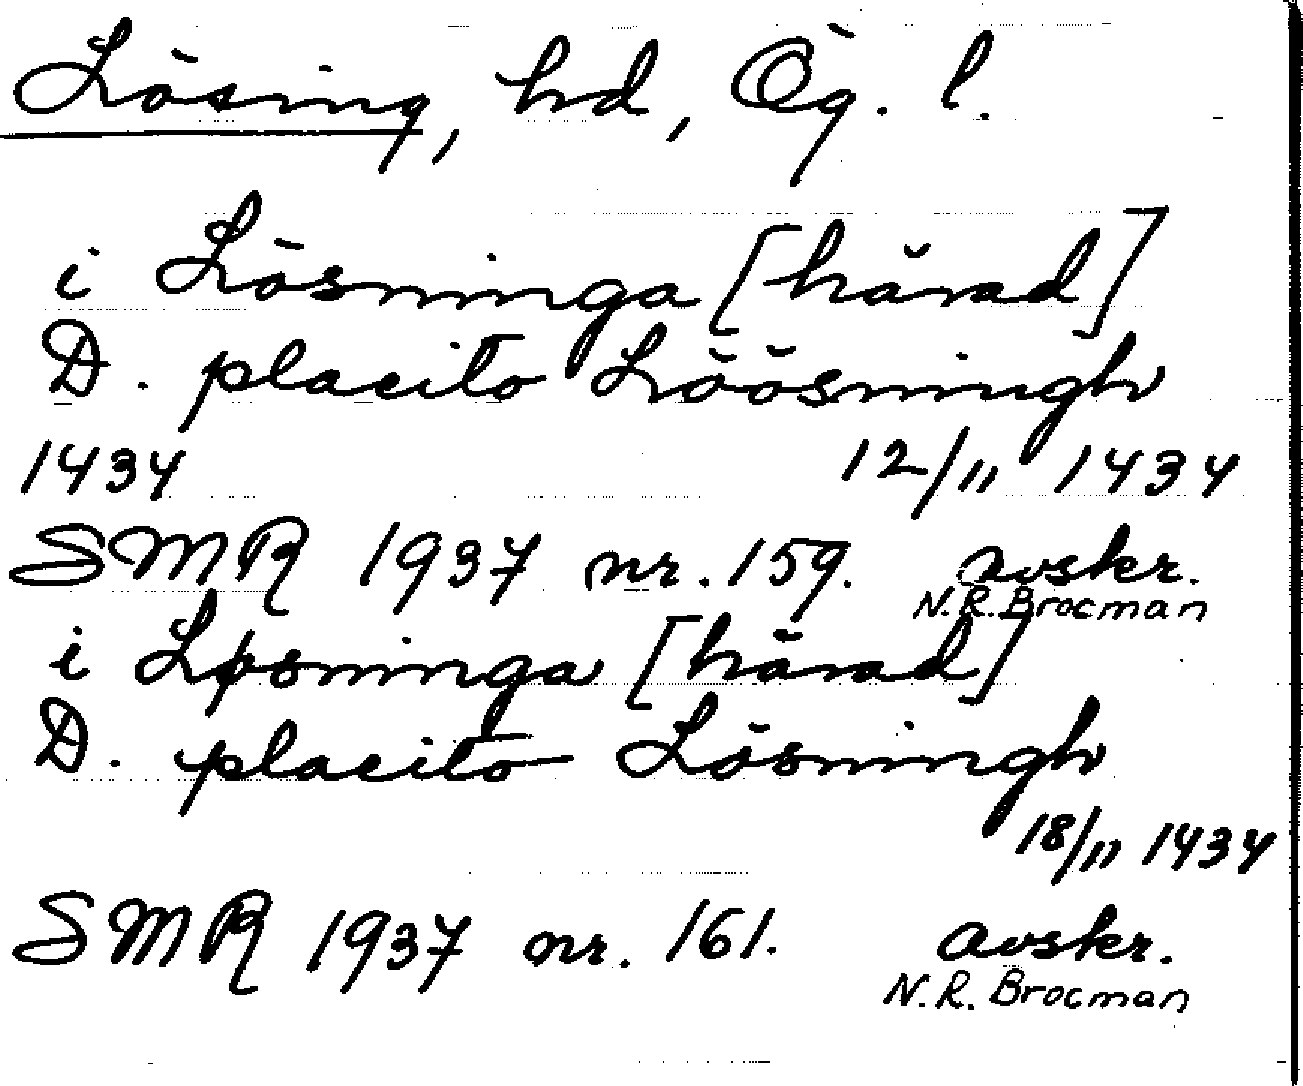 Lösing, hd, Ög. l.
i Lösninga [härad]
D. placito Löösningh
1434 12/11 1434
SMR 1937 nr. 159. avskr.
N. R. Brocman
i Løsninga [härad]
D. placito Lösningh
18/11 1434
SMR 1937 nr. 161. avskr.
N. R. Brocman